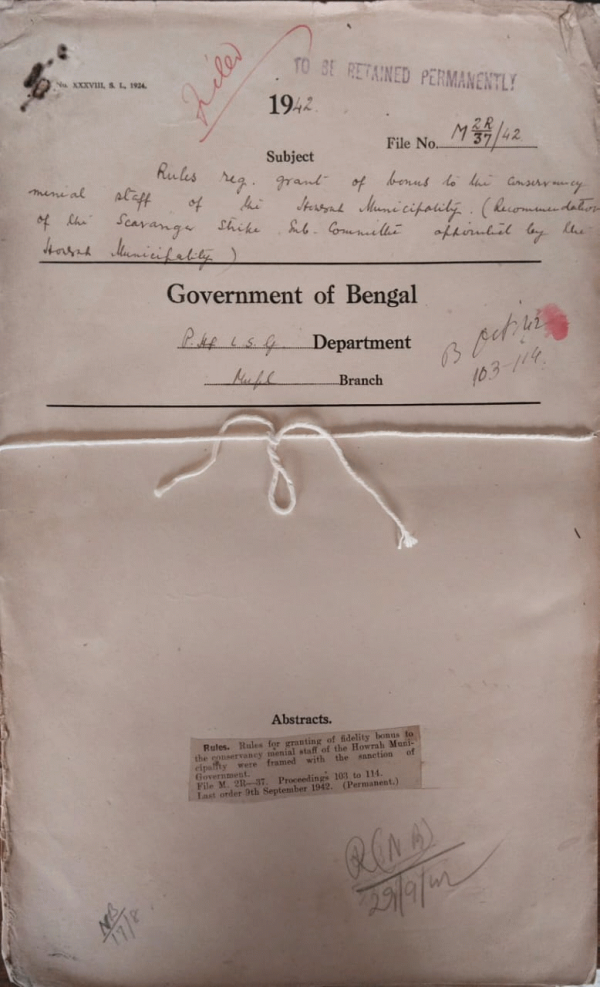 No. XXXVIII, S. L., 1924.
Filed
TO BE RETAINED PERMANENTLY
1942.
File No. M 2R/37/42
Subject
Rules reg. grant of bonus to the conservancy
menial staff of the Howrah Municipality. (Recommendation
of the Scavanger Strike Sub-Committee appointed by the
Howrah Municipality)
Government of Bengal
Department
Branch
B Oct '42
103-114.
Abstracts.
Rules. Rules for granting of fidelity bonus to
the conservancy menial staff of the Howrah Muni-
cipality were framed with the sanction of
Government.
File M. 2R—37. Proceedings 103 to 114.
Last order 9th September 1942. (Permanent.)
R(NB)
29/9/42
NB
17/8